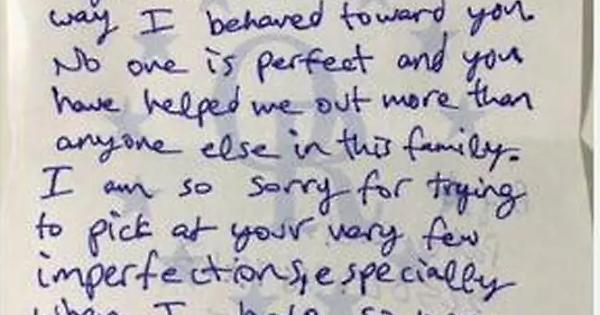 way I behaved toward you.
No one is perfect and you
have helped me out more than
anyone else in this family.
I am so sorry for trying
to pick at your very few
imperfections, especially
when I